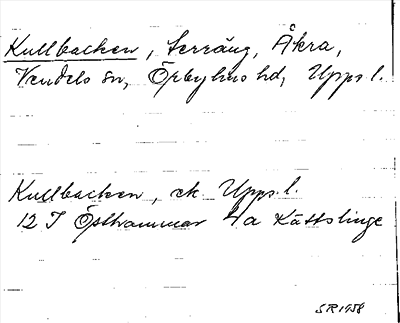 Kullbacken, terräng, Åkra,
Vendels sn, Örbyhus hd, Upps. l.
Kullbacken, ek Upps. l.
12 I Östhammar 4a Kättslinge
SR 1958